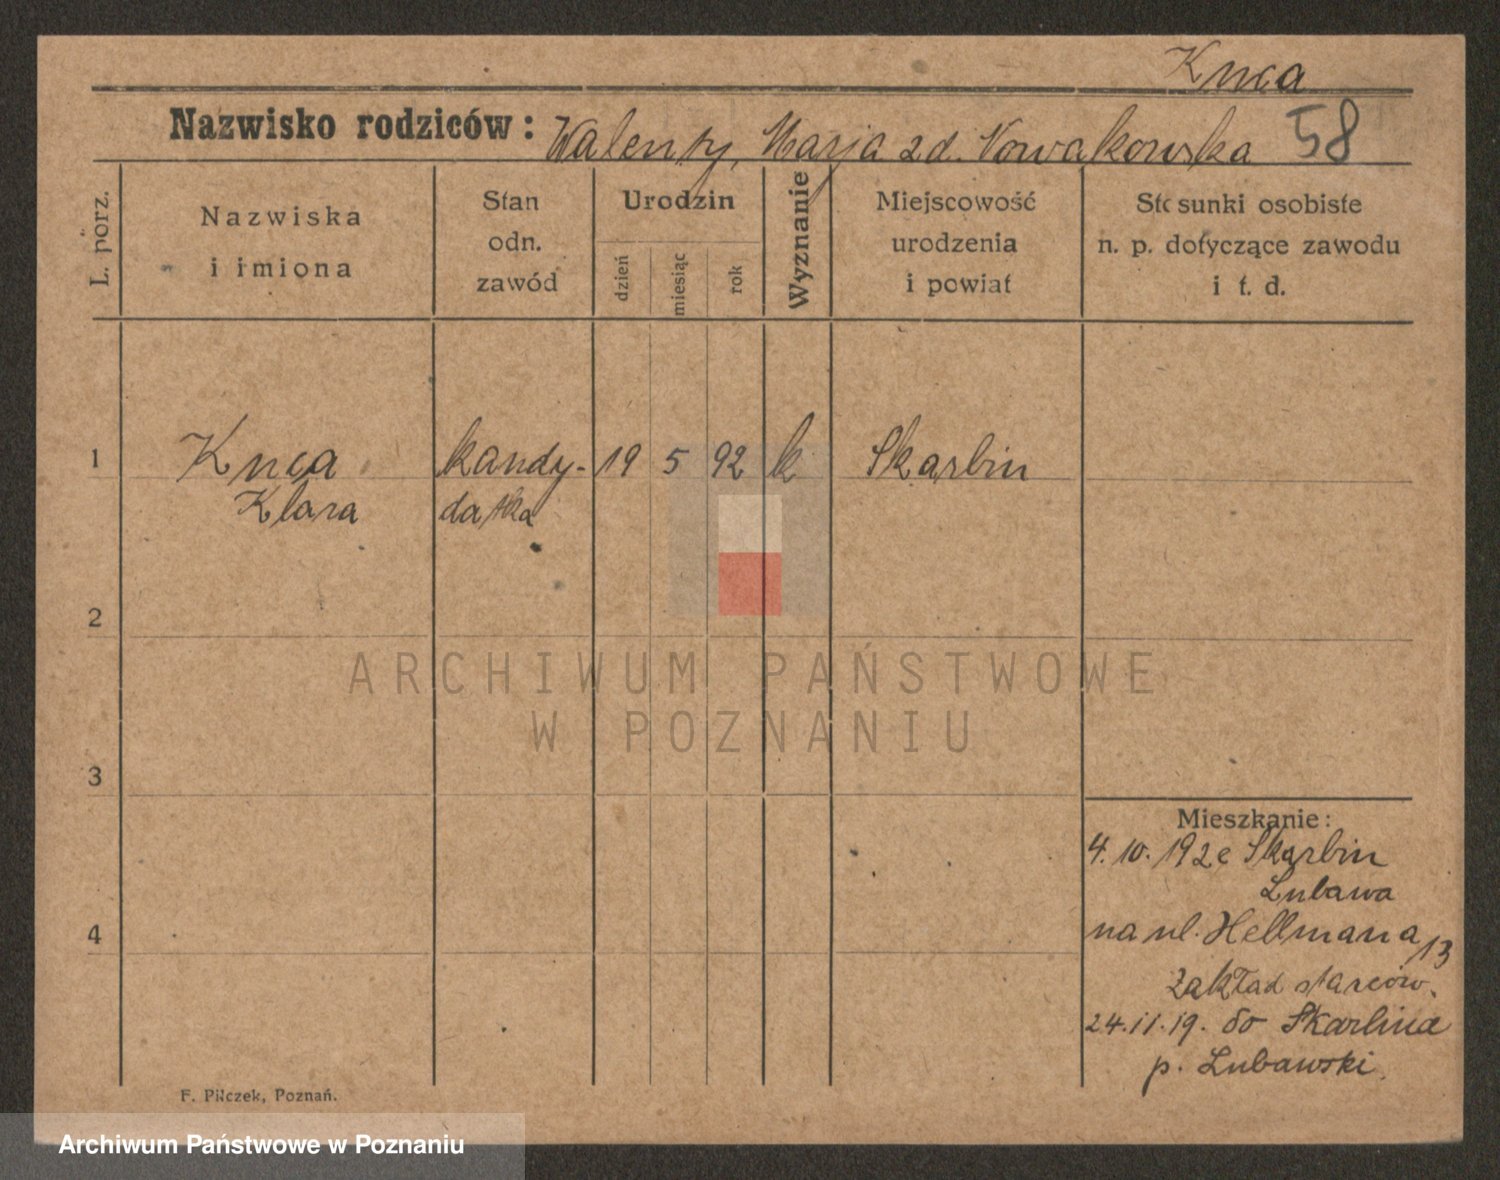 Knca
Nazwisko rodziców: Walenty, Marja zd. Nowakowska 58
L. porz.
Nazwiska
i imiona
Stan
odn.
zawód
Urodzin
dzień
miesiąc
rok
Wyznanie
Miejscowość
urodzenia
i powiat
Stosunki osobiste
n. p. dotyczące zawodu
i t. d.
1 Knca kandy- 19 5 92 k Skarbin
Klara datka
2
3
4
Mieszkanie:
4. 10. Skarbin
Lubawa
na ul. Hellmana 13
Zakład starców.
24.11.19. do Skarlina
p. Lubawski
F. Pilczek, Poznań.
ARCHIWUM PAŃSTWOWE
W POZNANIU
Archiwum Państwowe w Poznaniu